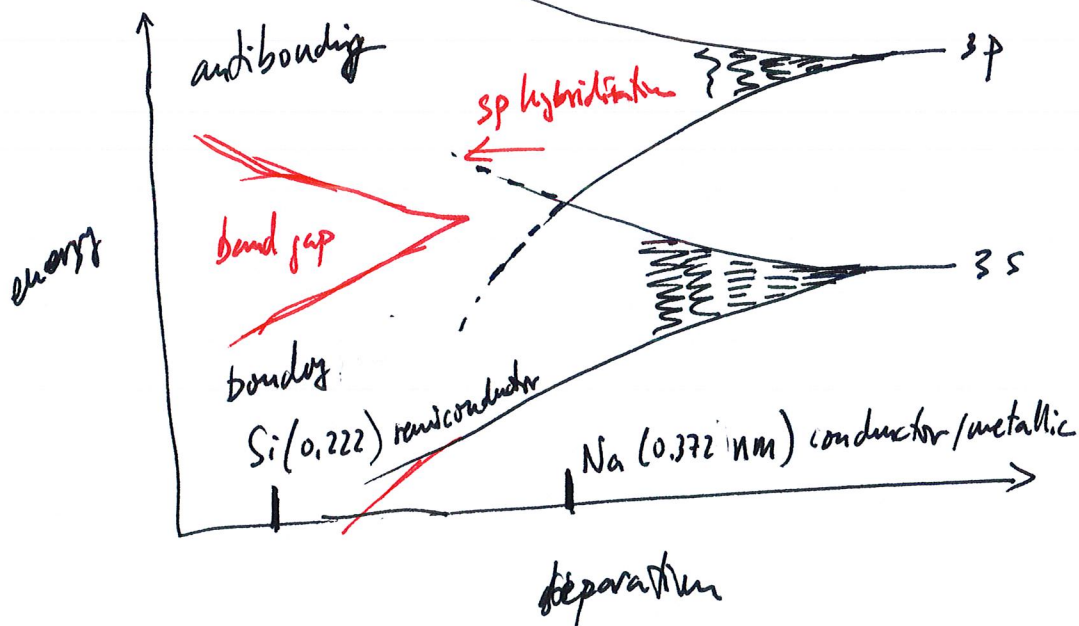 antibonding
3p
sp hybridization
band gap
energy
3s
bonding
Si (0,222) semiconductor
Na (0.372 nm) conductor/metallic
separation